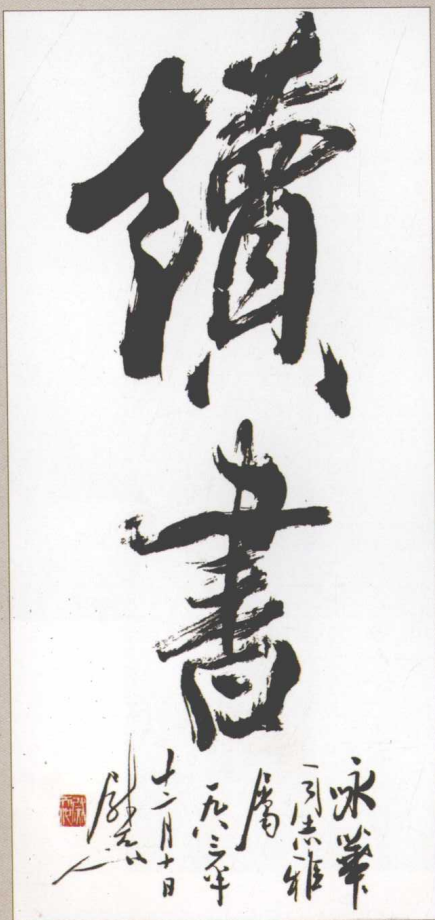 讀書
咏華
同志雅
属
一九八三年
十二月十日